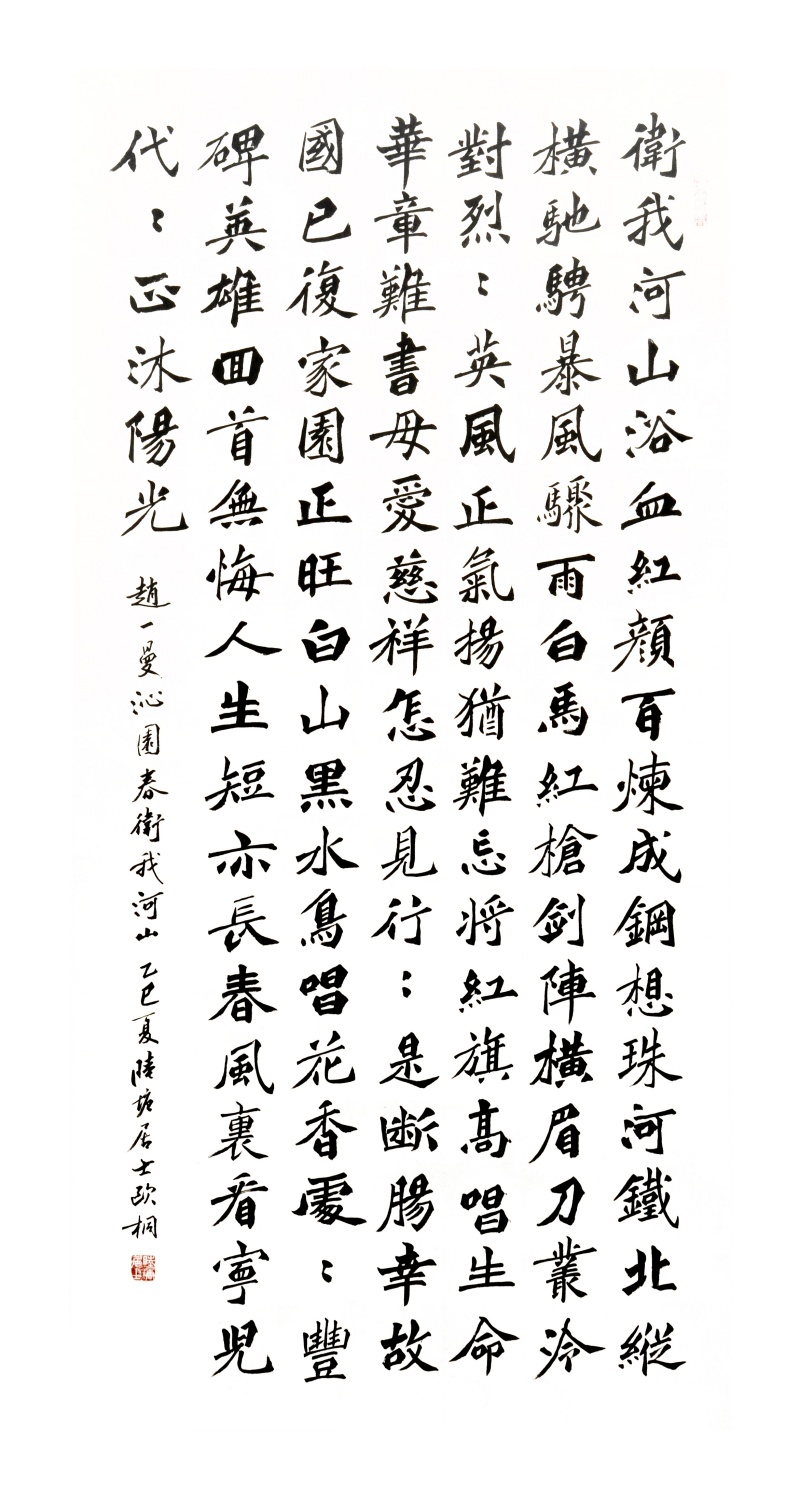 衛我河山浴血紅顔百煉成鋼想珠河鐵北縱
橫馳騁暴風驟雨白馬紅槍劍陣橫眉刀叢冷
對烈〻英風正氣揚猶難忘將紅旗高唱生命
華章難書母愛慈祥怎忍見行〻是断腸幸故
國已復家園正旺白山黑水鳥唱花香處〻豐
碑英雄回首無悔人生短亦長春風裏看寧児
代〻正沐陽光
趙一曼沁園春衛我河山乙巳夏陸坊居士歐桐